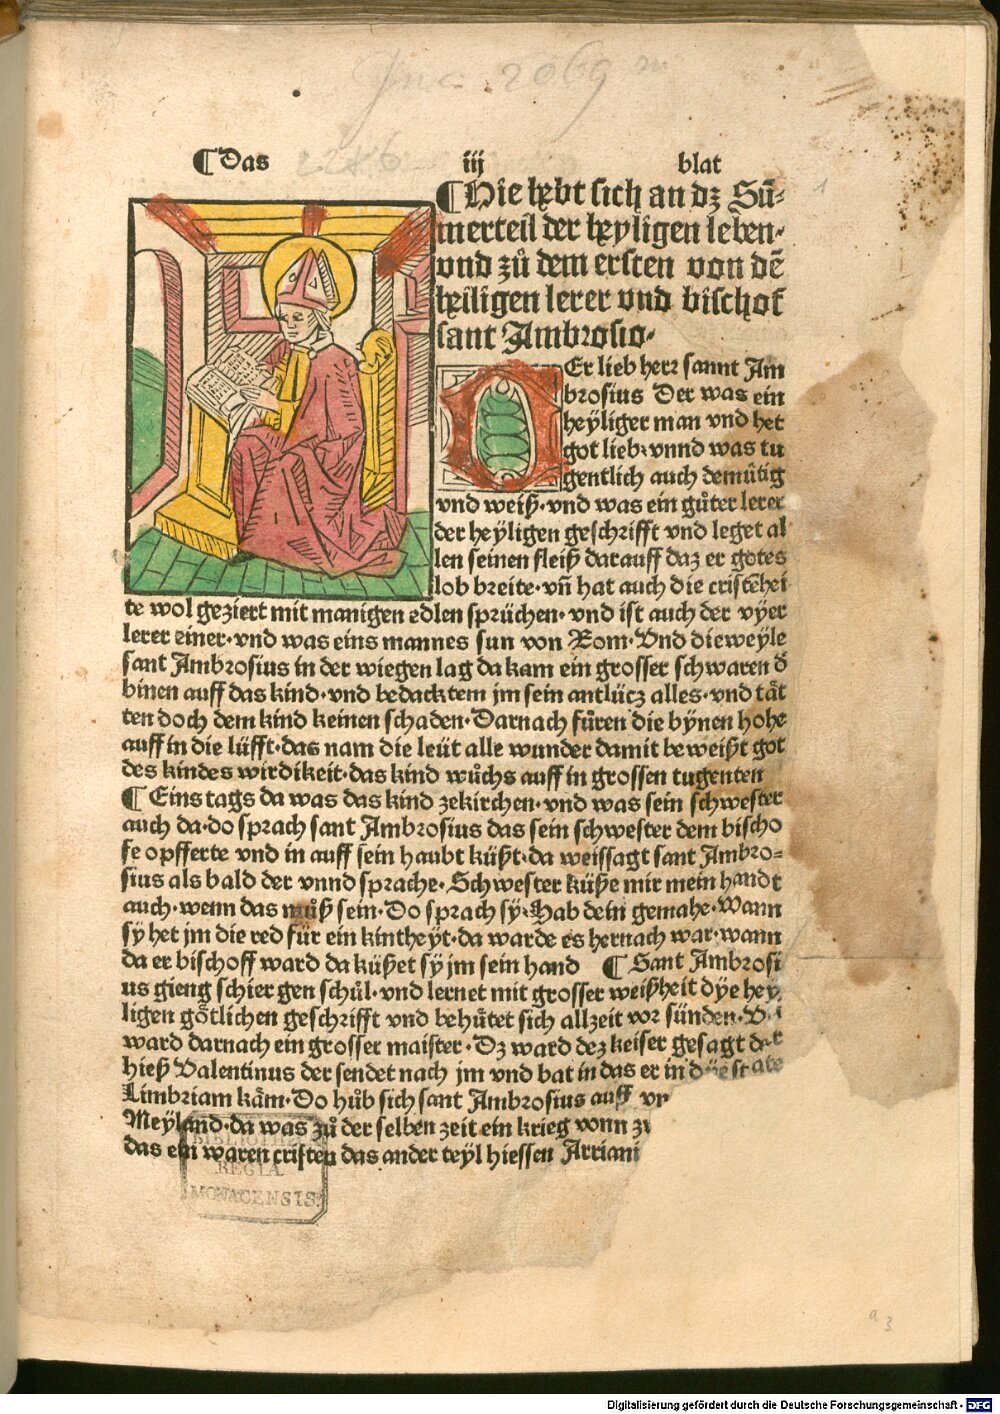 Inc. 2069 m
¶ Das iij blat
1
¶ Hie hebt sich an dz Sū-
merteil der heyligen leben.
vnd zů dem ersten von dē
heiligen lerer vnd bischof
sant Ambrosio.
DEr lieb herr sannt Am
brosius Der was ein
heyliger man vnd het
got lieb. vnnd was tu
gentlich auch demütig
vnd weiß. vnd was ein gůter lerer
der heyligen geschrifft vnd leget al
len seinen fleiß darauff daz er gotes
lob breite. vñ hat auch die cristēhei
te wol geziert mit manigen edlen sprüchen. vnd ist auch der vyer
lerer einer. vnd was eins mannes sun von Rom. Vnd dieweyle
sant Ambrosius in der wiegen lag da kam ein grosser schwaren d̄
binen auff das kind. vnd bedacktem jm sein antlücz alles. vnd tät
ten doch dem kind keinen schaden. Darnach füren die bynen hohe
auff in die lüfft. das nam die leüt alle wunder damit beweißt got
des kindes wirdikeit. das kind wůchs auff in grossen tugenten
¶ Eins tags da was das kind zekirchen. vnd was sein schwester
auch da. do sprach sant Ambrosius das sein schwester dem bischo
fe opfferte vnd in auff sein haubt küßt. da weissagt sant Ambro=
sius als bald der vnnd sprache. Schwester küße mir mein handt
auch. wenn das můß sein. Do sprach sy. Hab dein gemahe. Wann
sy het jm die red für ein kintheyt. da warde es hernach war. wann
da er bischoff ward da küßet sy jm sein hand ¶ Sant Ambrosi
us gieng schier gen schůl. vnd lernet mit grosser weißheit dye hey
ligen götlichen geschrifft vnd behütet sich allzeit vor sünden.
ward darnach ein grosser maister. Dz ward dez keiser gesagt der
hieß Valentinus der sendet nach jm vnd bat in das er in dye state
Limbriam käm. Do hůb sich sant Ambrosius auff
Meyland. da was zů der selben zeit ein krieg vonn
das ein waren cristen das ander teyl hiessen Arriani
BIBLIOTHECA
REGIA
MONACENSIS.
a 3
Digitalisierung gefördert durch die Deutsche Forschungsgemeinschaft - DFG